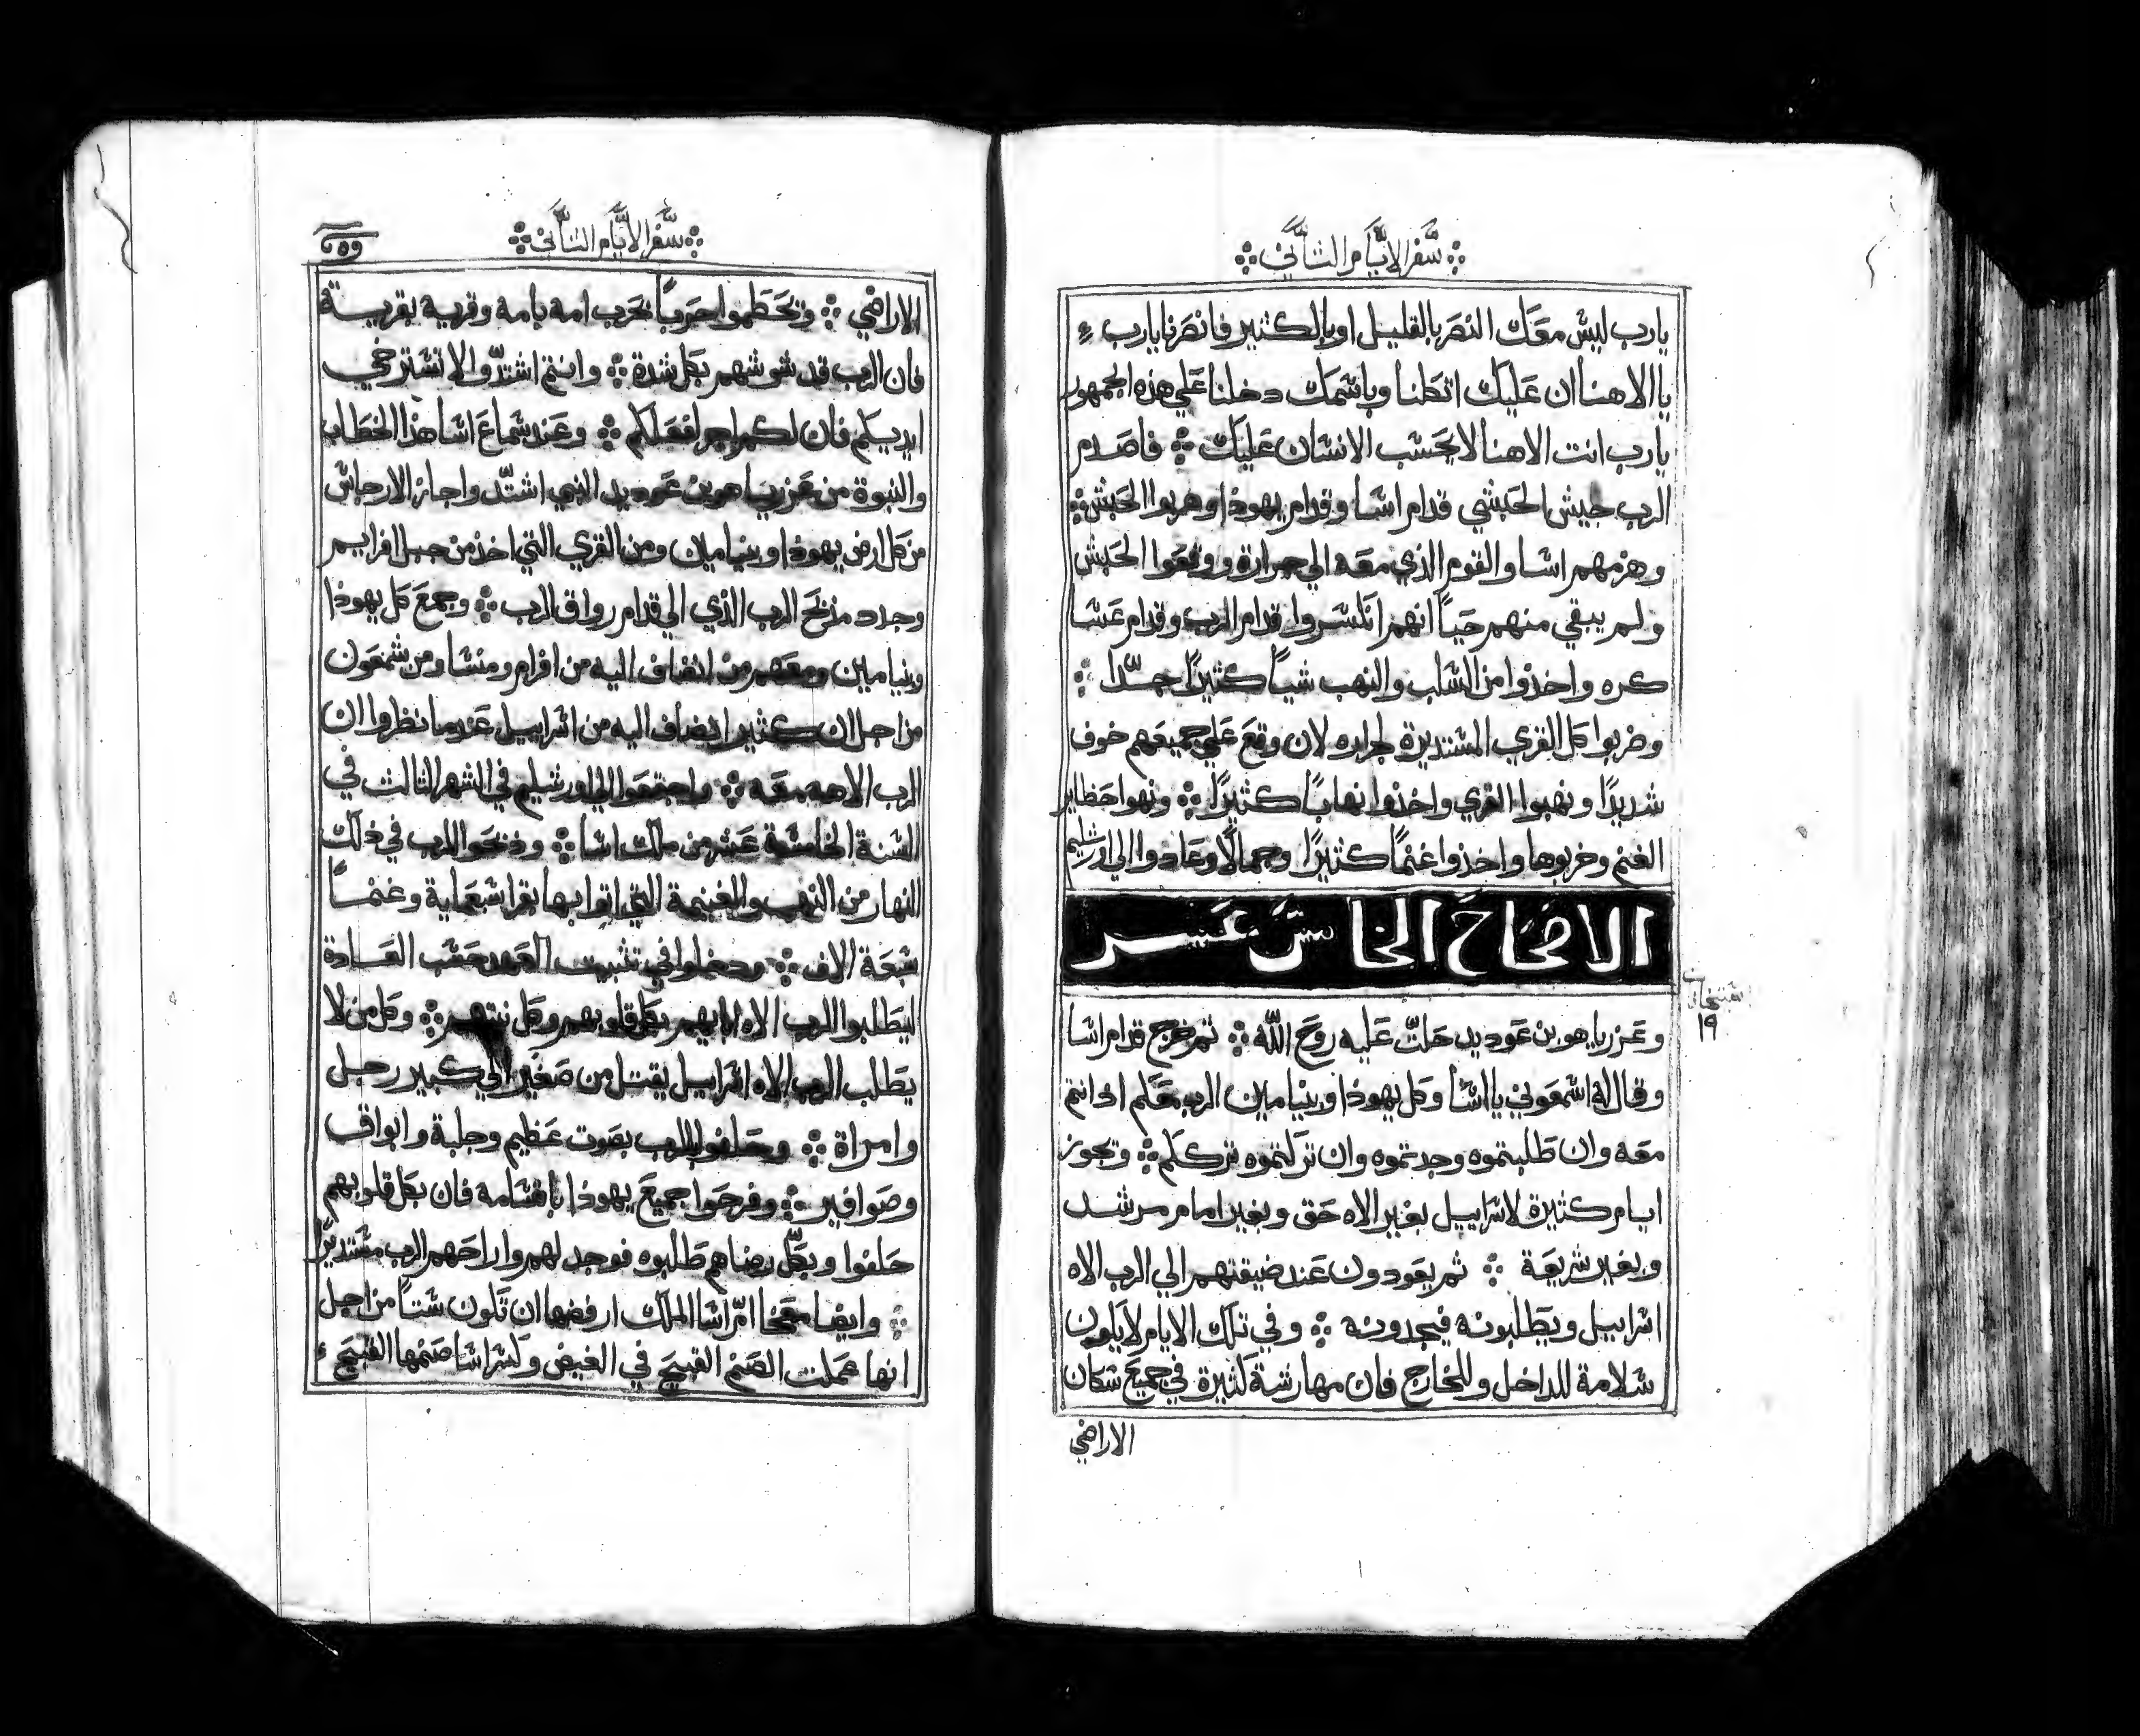 سفر الايام الثاني
يارب ليس معك النصر بالقليل او بالكثير فانصرنا يارب
يا الاهنا ان عليك اتكلنا وباسمك دخلنا علي هذه الجمهور
يارب انت الاهنا لا يحسب الانسان عليك فاصدم
الرب جيش الحبشي قدام اشا وقدام يهوذا وهربوا الحبش
وهزمهم اشا والقوم الذي معه الي جرارة ووقعوا الحبش
ولم يبقي منهم حياً انهم انكسروا قدام الرب وقدام عسا
كره واخذوا من السلب والنهب شياً كثيراً جداً
وضربوا كل القري المستديرة لجراره لان وقع علي جميعهم خوف
شديداً ونهبوا القري واخذوا نهاباً كثيراً ونهبوا حظاير
الغنم وخربوها واخذوا غنماً كثيراً وجمالاً وعادوا الي اورشليم
الاصحاح الخامس عشر
١٩
وعزريا هو بن عوديد حلت عليه روح الله ثم خرج قدام اشا
وقال له اسمعوني يا اشا وكل يهوذا وبنيامين الرب معكم اذ انتم
معه وان طلبتموه وجدتموه وان تركتموه ترككم وتجوز
ايام كثيرة لاسراييل بغير الاه حق وبغير امام مرشد
وبغير شريعة ثم يعودون عند ضيقتهم الي الرب الاه
اسراييل ويطلبونه فيجدونه وفي تلك الايام لا يكون
سلامة للداخل وللخارج فان مهارشة كثيرة في جميع سكان
الاراضي
سفر الايام الثاني
الاراضي وتحطموا حرباً تحرب امه بامه وقريه بقريـة
فان الرب قد شوشهم بكل شدة وانتم اشتدوا لا تسترخي
ايديكم فان لكم اجر لفعلكم وعند سماع اشا هذا الخطاب
والنبوة من عزريا هو بن عوديد النبي اشتد واجاز الارجاس
من كل ارض يهوذا وبنيامين ومن القري التي اخذ من جبل افرايم
وجدد مذبح الرب الذي الي قدام رواق الرب وجمع كل يهوذا
وبنيامين ومعهم من انضاف اليه من افرام ومنشا ومن شمعون
من اجل ان كثير انضاف اليه من اسراييل عندما نظروا ان
الرب الاهه معه واجتمعوا الي اورشليم في الشهر الثالث في
السنة الخامسة عشر من ملك اشا وذبحوا للرب في ذلك
النهار من النهب والغنيمة التي اتوا بها بقر اسبعماية وغنمـاً
سبعة الاف ودخلوا في تثبيت العهد حسب العـادة
ليطلبوا الرب الاه ابايهم بكل قلوبهم وكل نيتهم وكل من لا
يطلب الرب الاه اسراييل يقتل من صغير الي كبير رجل
وامراة وحلفوا للرب بصوت عظيم وجلبة وابواق
وصوافير وفرحوا جميع يهوذا باقسامه فان بكل قلوبهم
حلفوا وبكل رضاهم طلبوه فوجد لهم واراحهم الرب مستديراً
وايضا معخا ام اشا الملك ارفضها ان تكون ستاً من اجل
انها عملت الصنم القبيح في الغيض وكسر اشا صنمها القبيح